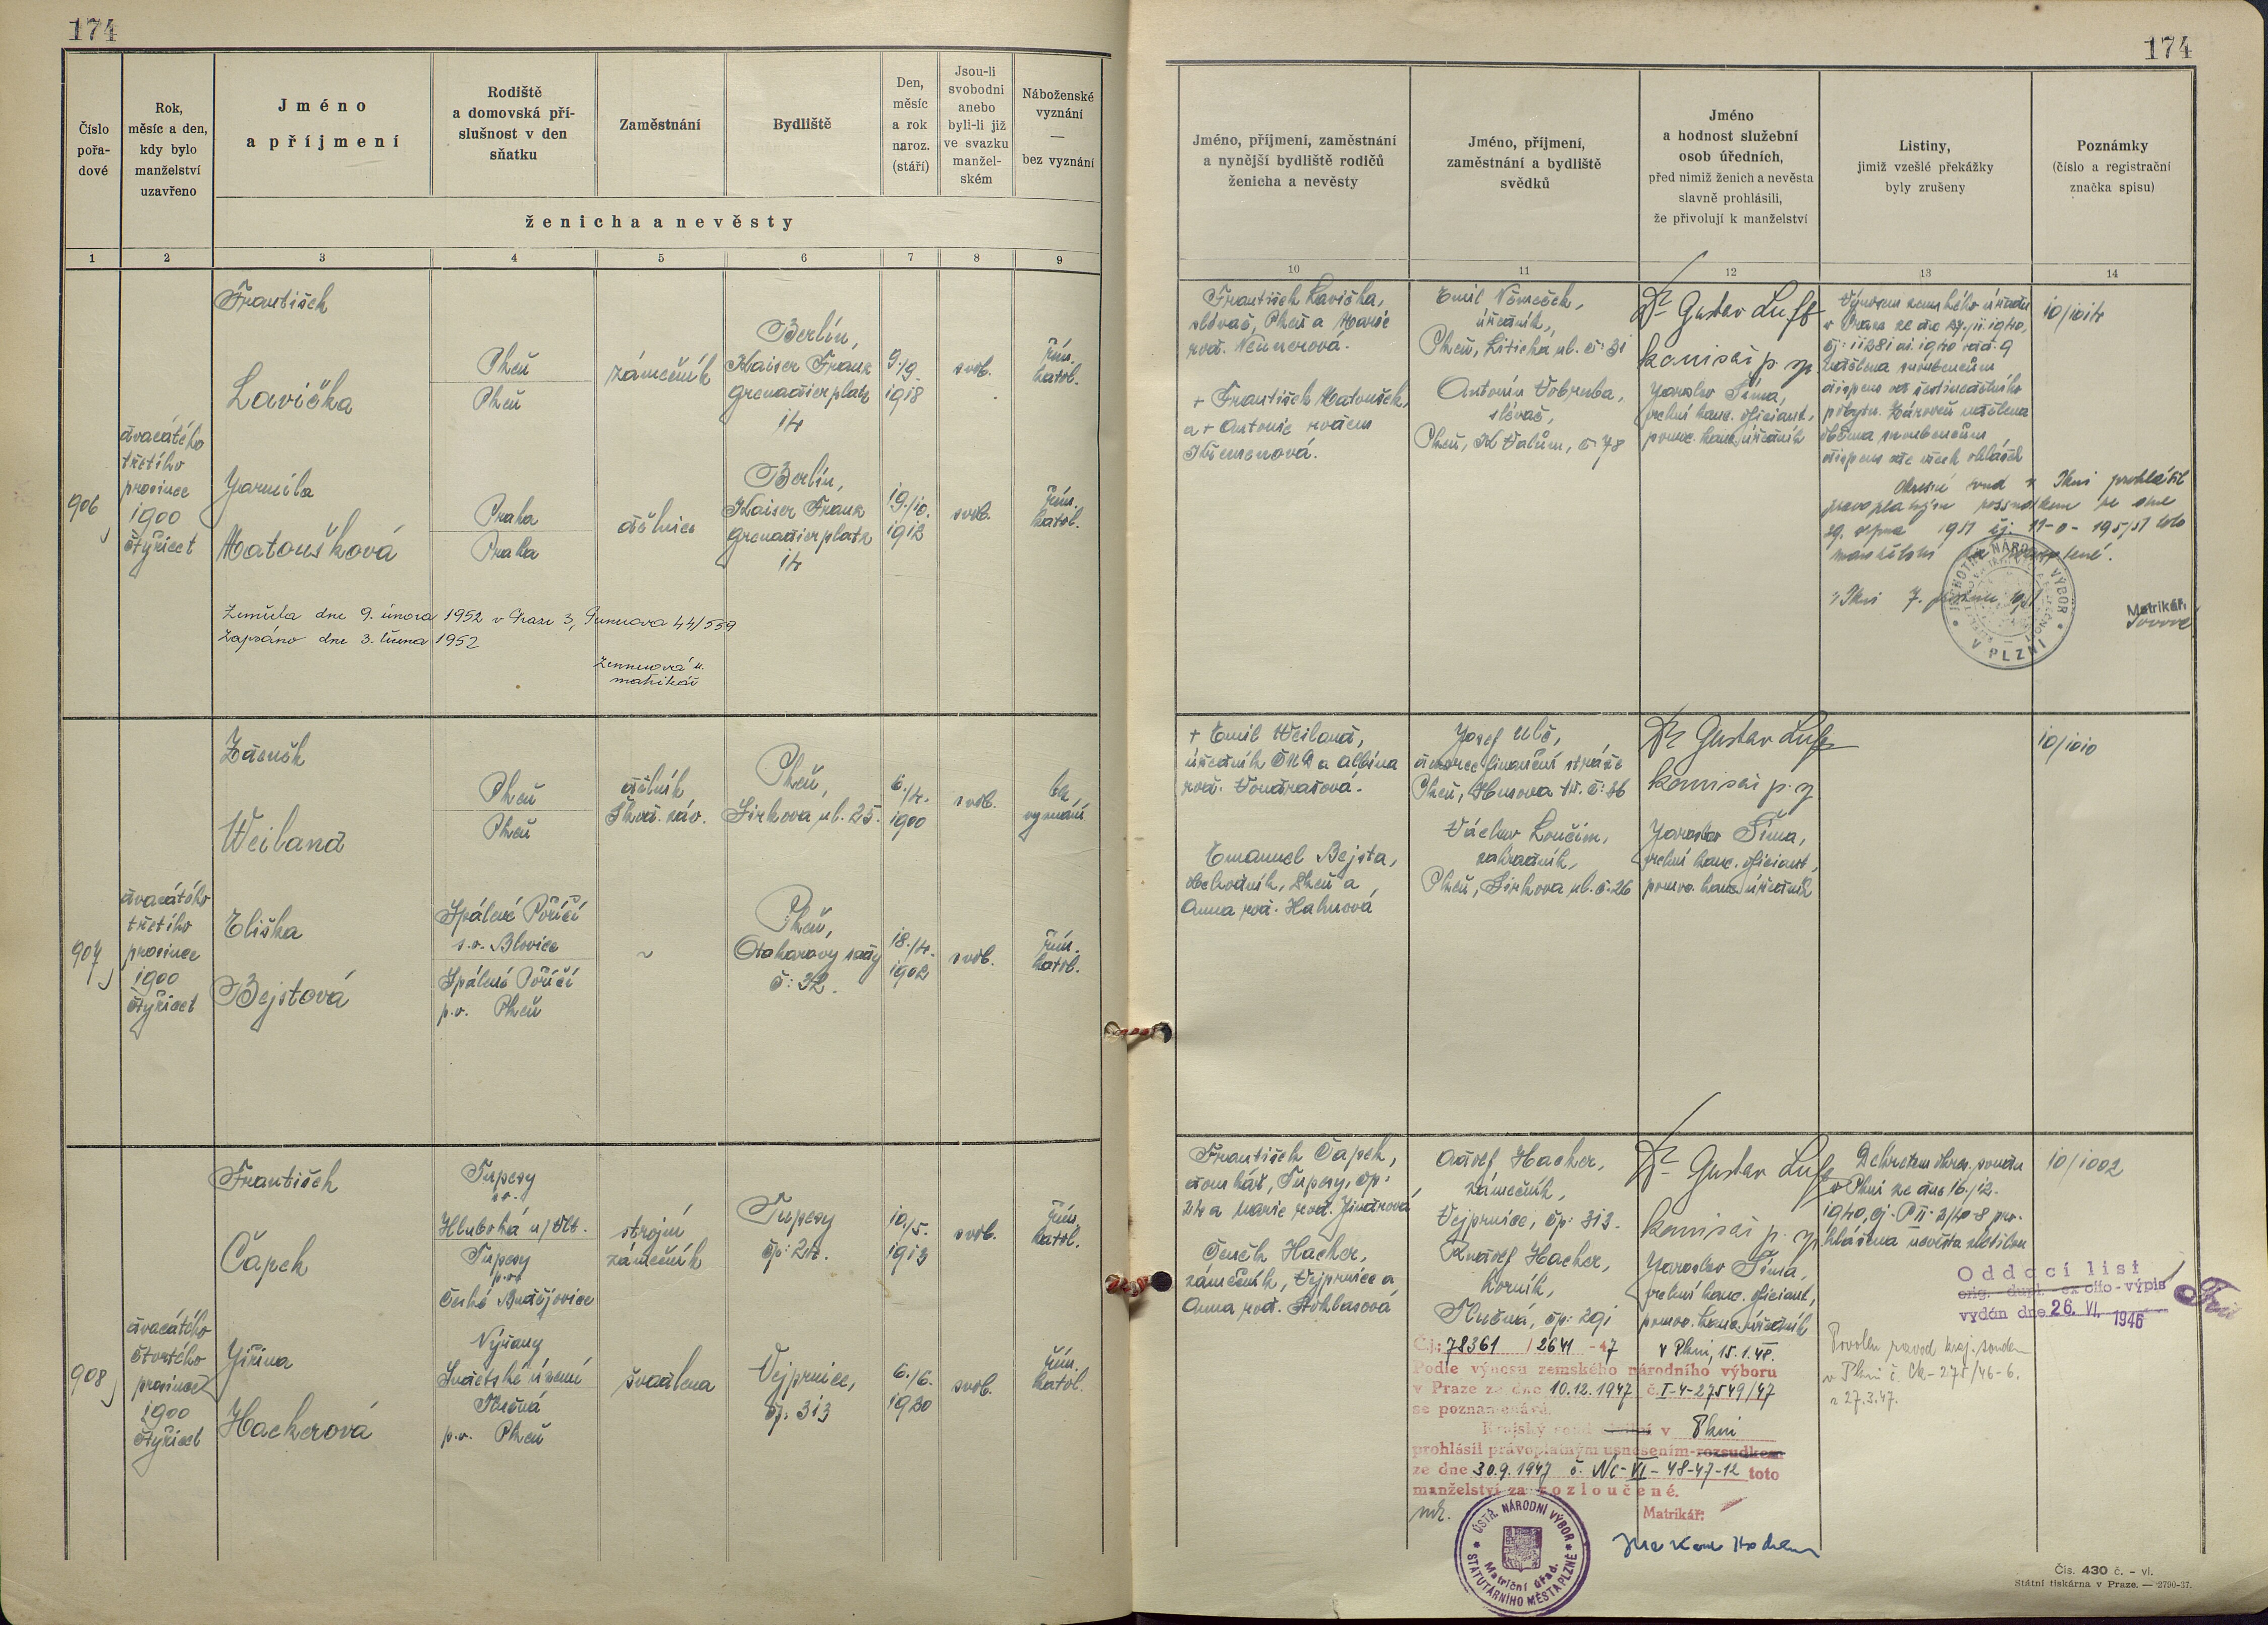 174
174
Číslo
pořa-
dové
Rok,
měsíc a den,
kdy bylo
manželství
uzavřeno
Jméno
a příjmení
Rodiště
a domovská pří-
slušnost v den
sňatku
Zaměstnání
Bydliště
Den,
měsíc
a rok
naroz.
(stáří)
Jsou-li
svobodni
anebo
byli-li již
ve svazku
manžel-
ském
Náboženské
vyznání
—
bez vyznání
ženicha a nevěsty
1 2 3 4 5 6 7 8 9
Jméno, příjmení, zaměstnání
a nynější bydliště rodičů
ženicha a nevěsty
Jméno, příjmení,
zaměstnání a bydliště
svědků
Jméno
a hodnost služební
osob úředních,
před nimiž ženich a nevěsta
slavně prohlásili,
že přivolují k manželství
Listiny,
jimiž vzešlé překážky
byly zrušeny
Poznámky
(číslo a registrační
značka spisu)
10 11 12 13 14
906
dvacátého
třetího
prosince
1900
čtyřicet
František
Lavička
Plzeň
Plzeň
zámečník
Berlín,
Kaiser Franz
Grenadierplatz
14
9./9.
1918
svob.
řím.
katol.
Jarmila
Matoušková
Praha
Praha
dělnice
Berlín,
Kaiser Franz
Grenadierplatz
14
19./10.
1912
svob.
řím.
katol.
Zemřela dne 9. února 1952 v Praze 3,
Zapsáno dne 3. června 1952
matrikář
František Lavička,
slévač, Plzeň a Marie
roz. Neunerová.
+ František Matoušek,
a + Antonie rozen
Křemenová.
Emil Němeček,
úředník,
Plzeň, Litická ul. č: 31
Antonín Vobruba,
slévač,
Plzeň, K Valům, č. 78
Dr Gustav Luft
komisař p. ř.
Jaroslav Šíma,
vrchní kanc. oficiant,
pomoc. kanc. úředník
Výnosem zemského úřadu
v Praze ze dne 29./11. 1940,
čj: 11281 ai. 1940 odd. 9
udělena snoubencům
dispens od šestinedělního
pobytu. Zároveň udělena
oběma snoubencům
dispens ode všech ohlášek
Okresní soud v Plzni prohlásil
pravoplatným rozsudkem ze dne
29. srpna 1951 čj. toto
manželství za
v Plzni 7.
JEDNOTNÝ NÁRODNÍ VÝBOR
V PLZNI
Matrikář:
10/1014
907
dvacátého
třetího
prosince
1900
čtyřicet
Zdeněk
Weiland
Plzeň
Plzeň
dělník
Škod. záv.
Plzeň,
Sirkova ul. 25.
6./4.
1900
svob.
bez
vyznání
Eliška
Bejstová
Spálené Poříčí
s.o. Blovice
Spálené Poříčí
p.o. Plzeň
~
Plzeň,
Otokarovy sady
č: 32.
18./4.
1902
svob.
řím.
katol.
+ Emil Weiland,
úředník ČSD a Albína
roz. Vondrašová.
Emanuel Bejsta,
obchodník, Plzeň a
Anna roz. Hahnová
Josef Ulč,
dozorce finanční stráže
Plzeň, Husova tř. č: 36
Václav Loučím,
zahradník,
Plzeň, Sirkova ul. č. 26
Dr Gustav Luft
komisař p. ř.
Jaroslav Šíma,
vrchní kanc. oficiant,
pomoc. kanc. úředník
10/1010
908
dvacátého
čtvrtého
prosince
1900
čtyřicet
František
Čapek
Tupesy
s.o.
Hluboká n/Vlt.
Tupesy
p.o.
České Budějovice
strojní
zámečník
Tupesy
čp: 24.
10./5.
1913
svob.
řím.
katol.
Jiřina
Hackerová
Výšany,
Sudetské území
Tlučná
p.o. Plzeň
švadlena
Vejprnice,
čp: 313
6./6.
1920
svob.
řím.
katol.
František Čapek,
domkář, Tupesy, čp:
24 a Marie roz. Jindrová
Čeněk Hacker,
zámečník, Vejprnice a
Anna roz.
Adolf Hacker,
zámečník,
Vejprnice, čp: 313.
Rudolf Hacker,
horník,
Tlučná, čp: 291
Dr Gustav Luft
komisař p. ř.
Jaroslav Šíma,
vrchní kanc. oficiant,
pomoc. kanc. úředník
Dekretem okres. soudu
v Plzni ze dne 16./12.
1940, čj. P II. 2/40-8 pro-
hlášena nevěsta zletilou
10/1002
Oddací list
orig. dupl. ex offo - výpis
vydán dne 26. VI. 1946
Povolen rozvod kraj. soudem
v Plzni č. Ck-275/46-6.
z 27.3.47.
Č.j.: 78361 / 2641 - 47 V Plzni, 15.1.48.
Podle výnosu zemského národního výboru
v Praze ze dne 10.12.1947 č. I-4-27549/47
se poznamenává:
Krajský soud civilní v Plzni
prohlásil právoplatným usnesením-rozsudkem
ze dne 30.9.1947 č. Nc-VI-48-47-12 toto
manželství za rozloučené.
Matrikář:
ÚSTŘ. NÁRODNÍ VÝBOR
STATUTÁRNÍHO MĚSTA PLZNĚ
Matriční úřad.
Čís. 430 č. - vl.
Státní tiskárna v Praze. — 2790-37.